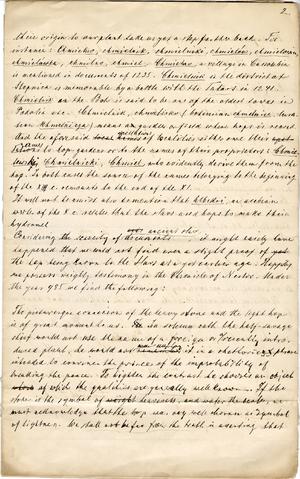 2.
their origin to our plant take us yet a step farther back. For
instance: Chmielno, chmielnik, chmielinski, chmielów, chmielowan,
chmielówka, chmielec, chmiel. Chmielno, a village in Cassubia
is mentioned in documents of 1235. Chmielnik in the district of
Stopnica is memorable by a battle with the Tatars in 1241.
Chmielnik on the Bob is said to be one of the oldest towns in
Podolia etc. Chmielnik,
means an garden, or field, of which hops is record
that the aforesaid names of localities either owe their
to hop-gardens or to the names of their proprietors: Chmie-
lewski, Chmielnicki, Chmiel, who evidently derive them from the
hop. In both cases the source of the names belonging to the beginning
of the XIII c. remounts to the end of the XI.
It will not be amiss also to mention that an arabian
write of the X c. relates that the slavs used hops to make their
hydromel
Considering the scarcity of documents, it might easily have
happened that we would not find even a slight proof of
the hop being known to the Slavs at a yet earlier age. Happily
we possess weighty testimony in the Chronicle of Nestor. Under
the year 985 we find the following:
The picturesque connexion of the heavy stone and the light hop
is of great moment to us. In solemn oath the half-savage
chief would not use the name of a foreign or recently intro-
duced plant, he would not it in a phrase
intended to convince the prince of the improbability of
breaking the peace. To heighten the contrast he chooses an object
of which the qualities are generally well known. If the
stone is the symbol of heaviness, and water the scale, we
must acknowledge that the hop was very well chosen as a symbol
of lightness. We shall not be far from the truth in asserting that